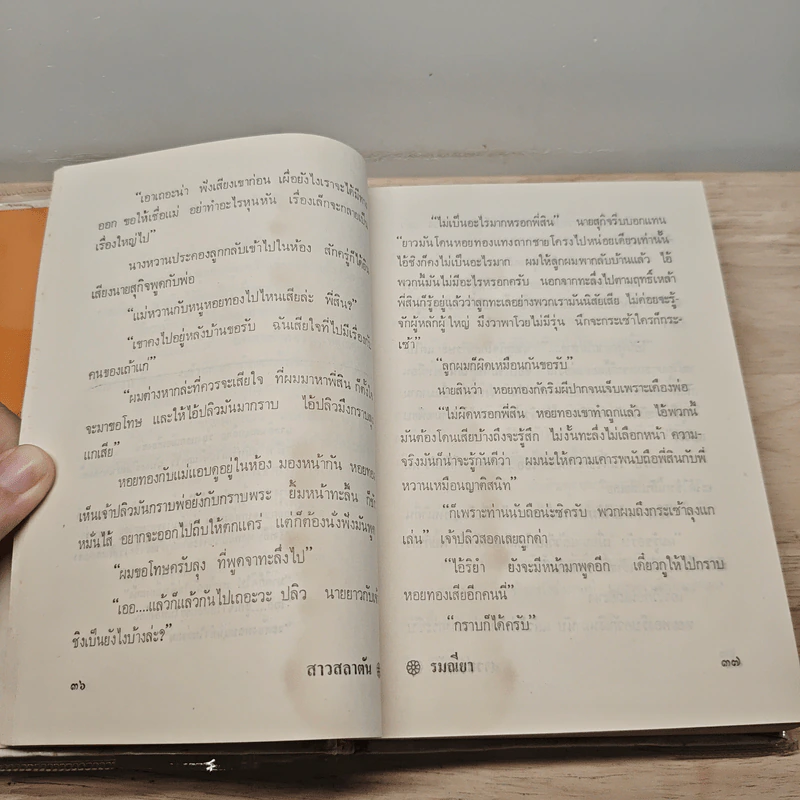 “เอาเถอะน่า ฟังเสียงเขาก่อน เผื่อยังไงเราจะได้มีทาง
ออก ขอให้เชื่อแม่ อย่าทำอะไรหุนหัน เรื่องเล็กจะกลายเป็น
เรื่องใหญ่ไป”
นางหวานประคองลูกกลับเข้าไปในห้อง สักครู่ก็ได้ยิน
เสียงนายสุกิจพูดกับพ่อ
“แม่หวานกับหนูหอยทองไปไหนเสียล่ะ พี่สิน?”
“เขาคงไปอยู่หลังบ้านขอรับ ฉันเสียใจที่ไปมีเรื่องกับ
คนของเถ้าแก่”
“ผมต่างหากล่ะที่ควรจะเสียใจ ที่ผมมาหาพี่สิน ก็ตั้งใจ
จะมาขอโทษ และให้ไอ้ปลิวมันมากราบ ไอ้ปลิวมึงกราบลุง
แกเสีย”
หอยทองกับแม่แอบดูอยู่ในห้อง มองหน้ากัน หอยทอง
เห็นเจ้าปลิวมันกราบพ่อยังกับกราบพระ ยิ้มหน้าทะลึ่น ก็นึก
หมั่นไส้ อยากจะออกไปถีบให้ตกแคร่ แต่ก็ต้องนั่งฟังมันพูด
“ผมขอโทษครับลุง ที่พูดจาทะลึ่งไป”
“เออ....แล้วก็แล้วกันไปเถอะวะ ปลิว นายยาวกับเจ้า
ชิงเป็นยังไงบ้างล่ะ?”
สาวสลาตัน
๓๖
“ไม่เป็นอะไรมากหรอกพี่สิน” นายสุกิจรีบบอกแทน
“ยาวมันโดนหอยทองแทงถากชายโครงไปหน่อยเดียวเท่านั้น
ไอ้ชิงก็คงไม่เป็นอะไรมาก ผมให้ลูกผมพากลับบ้านแล้ว ไอ้
พวกนี้มันไม่มีอะไรหรอกครับ นอกจากทะลึ่งไปตามฤทธิ์เหล้า
พี่สินก็รู้อยู่แล้วว่าลูกทะเลอย่างพวกเรามันนิสัยเสีย ไม่ค่อยจะรู้-
จักผู้หลักผู้ใหญ่ มึงวาพาโวยไม่มีรุ่น นึกจะกระเซ้าใครก็กระ-
เซ้า”
“ลูกผมก็ผิดเหมือนกันขอรับ”
นายสินว่า หอยทองกัดริมฝีปากจนเจ็บเพราะเคืองพ่อ
“ไม่ผิดหรอกพี่สิน หอยทองเขาทำถูกแล้ว ไอ้พวกนี้
มันต้องโดนเสียบ้างถึงจะรู้สึก ไม่งั้นทะลึ่งไม่เลือกหน้า ความ-
จริงมันก็น่าจะรู้กันดีว่า ผมน่ะให้ความเคารพนับถือพี่สินกับพี่
หวานเหมือนญาติสนิท”
“ก็เพราะท่านนับถือน่ะซิครับ พวกผมถึงกระเซ้าลุงแก
เล่น” เจ้าปลิวสอดเสยถูกด่า
“ไอ้ริยำ ยังจะมีหน้ามาพูดอีก เดี๋ยวกูให้ไปกราบ
หอยทองเสียอีกคนนี่”
“กราบก็ได้ครับ”
รมณียา
๓๗